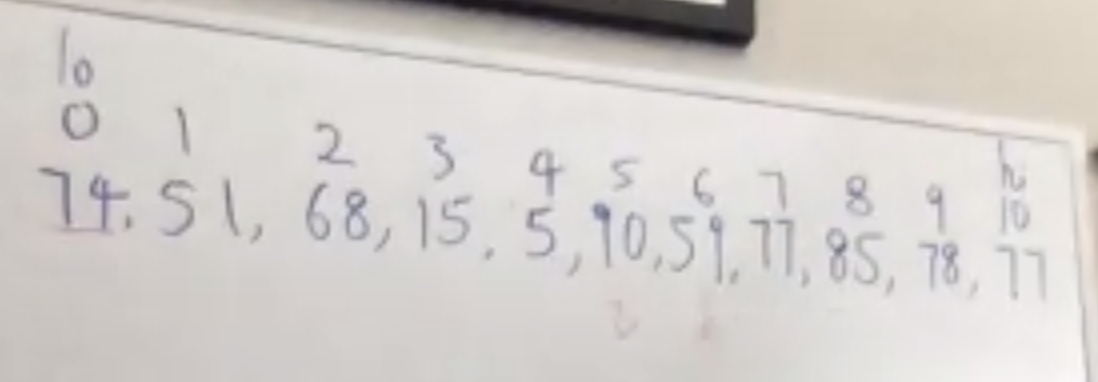 lo hi
0 1 2 3 4 5 6 7 8 9 10
74, 51, 68, 15, 5, 90, 59, 77, 85, 78, 77